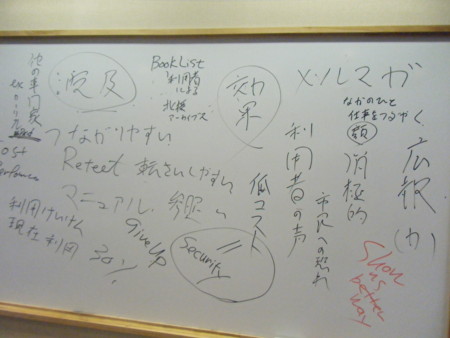 波及
BookList
利用者
による
北摂
アーカイブス
効果
メルマガ
なかのひと
仕事をつぶやく
広報(力)
消極的
市民への恐れ
利用者の声
低コスト
つながりやすい
Reteet 転さいしやすい
マニュアル
Give Up
Security
利用けいけん
現在 利用
Show
us
better
way